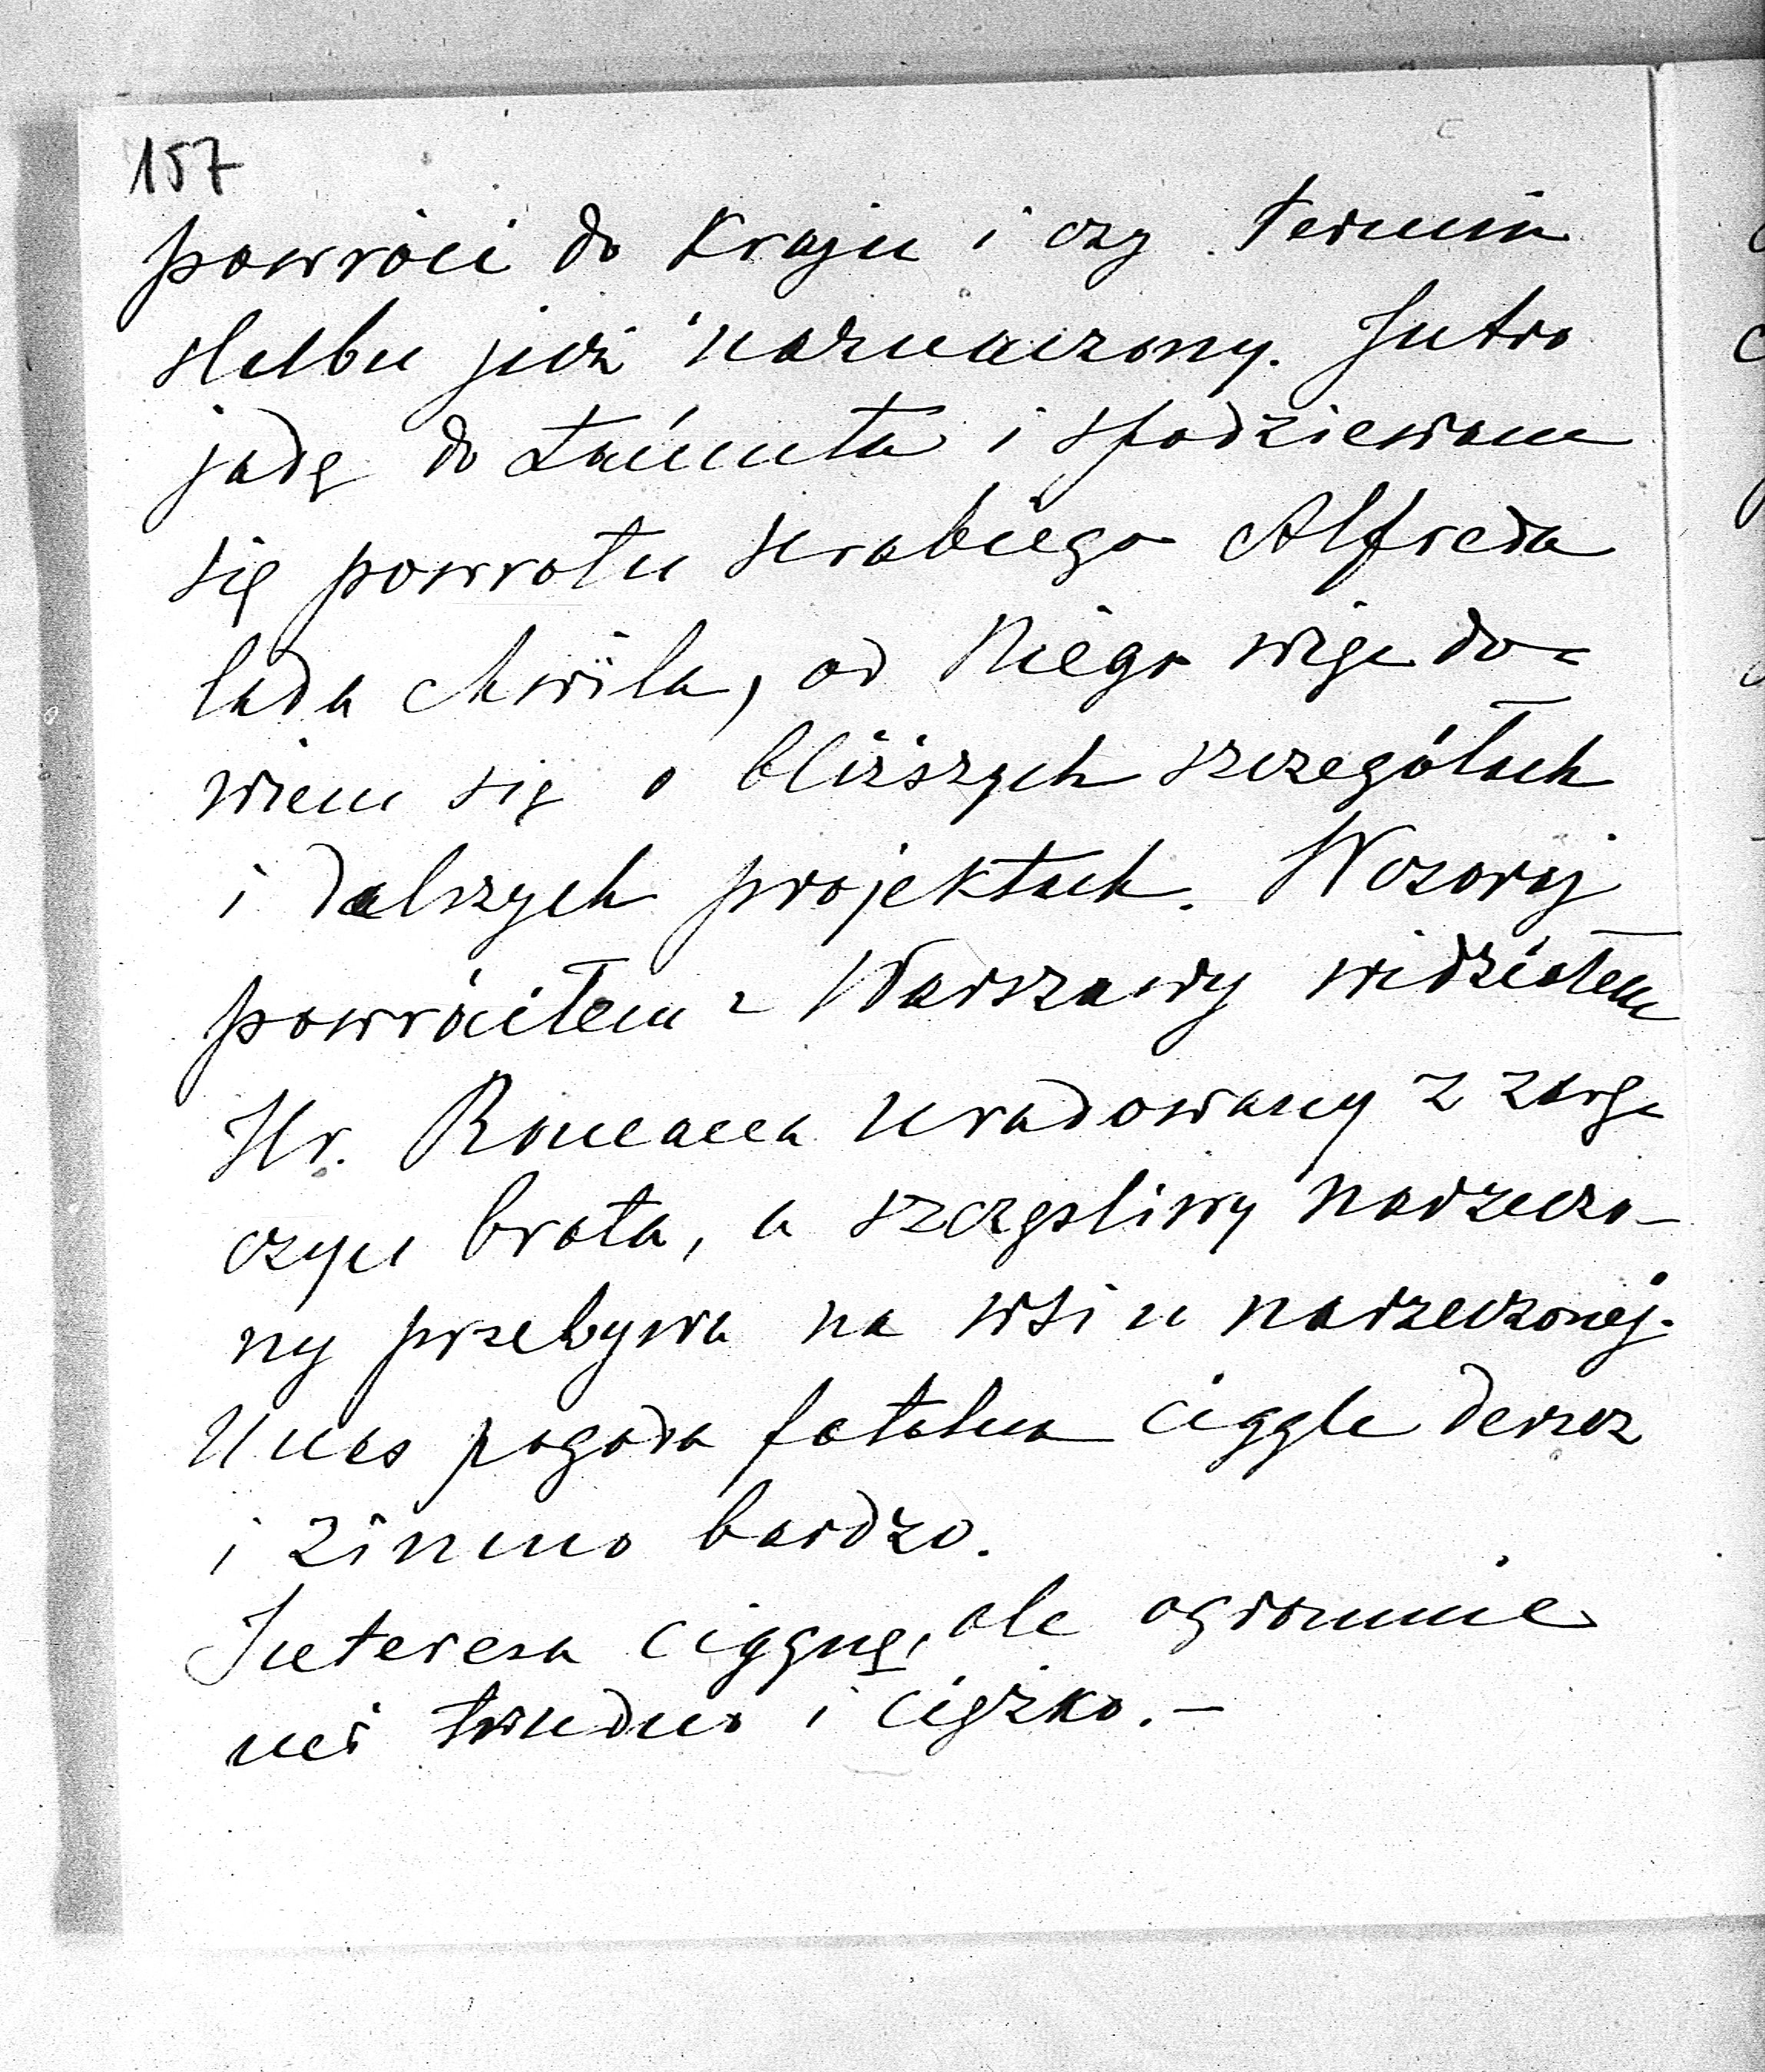 157
powróci do Kraju i czy termin
ślubu już naznaczony. Jutro
jadę do Łańcuta i spodziewam
się powrotu Hrabiego Alfreda
lada chwila, od Niego więc do=
wiem się o bliższych szczegółach
i dalszych projektach. Wczoraj
powróciłem z Warszawy widziałem
Hr. Romana uradowany z zarę
czyn brata, a szczęśliwy narzeczo-
ny przebywa na wsi u narzeczonej.
U nas pogoda fatalna ciągle deszcz
i zimno bardzo.
Interesa ciągnę, ale ogromnie
mi trudno i ciężko.-